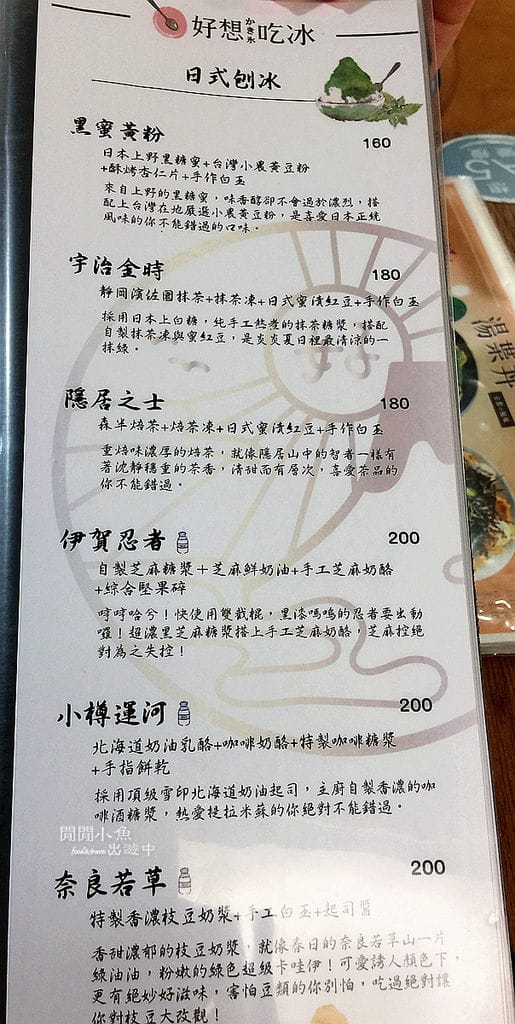 好想かき氷吃冰
日式刨冰
黑蜜黃粉 160
日本上野黑糖蜜+台灣小農黃豆粉
+酥烤杏仁片+手作白玉
來自上野的黑糖蜜，味香醇卻不會過於濃烈，搭
配上台灣在地嚴選小農黃豆粉，是喜愛日本正統
風味的你不能錯過的口味。
宇治金時 180
靜岡濱佐園抹茶+抹茶凍+日式蜜漬紅豆+手作白玉
採用日本上白糖，純手工熬煮的抹茶糖漿，搭配
自製抹茶凍與蜜紅豆，是炎炎夏日裡最清涼的一
抹綠。
隱居之士 180
森半焙茶+焙茶凍+日式蜜漬紅豆+手作白玉
重焙味濃厚的焙茶，就像隱居山中的智者一樣有
著沈靜穩重的茶香，清甜而有層次，喜愛茶品的
你不能錯過。
伊賀忍者 200
自製芝麻糖漿＋芝麻鮮奶油+手工芝麻奶酪
+綜合堅果碎
哼哼哈兮！快使用雙截棍，黑漆嗎嗚的忍者要出動
囉！超濃黑芝麻糖漿搭上手工芝麻奶酪，芝麻控絕
對為之失控！
小樽運河 200
北海道奶油乳酪+咖啡奶酪+特製咖啡糖漿
+手指餅乾
採用頂級雪印北海道奶油起司，主廚自製香濃的咖
啡酒糖漿，熱愛提拉米蘇的你絕對不能錯過。
閒閒小魚
food&travel 出遊中
奈良若草 200
特製香濃枝豆奶漿+手工白玉+起司醬
香甜濃郁的枝豆奶漿，就像春日的奈良若草山一片
綠油油，粉嫩的綠色超級卡哇伊！可愛誘人顏色下，
更有絕妙好滋味，害怕豆類的你別怕，吃過絕對讓
你對枝豆大改觀！
湯葉丼